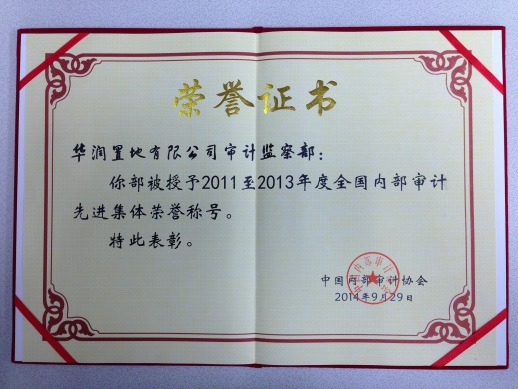 荣誉证书
华润置地有限公司审计监察部：
你部被授予2011至2013年度全国内部审计
先进集体荣誉称号。
特此表彰。
中国内部审计协会
2014年9月29日